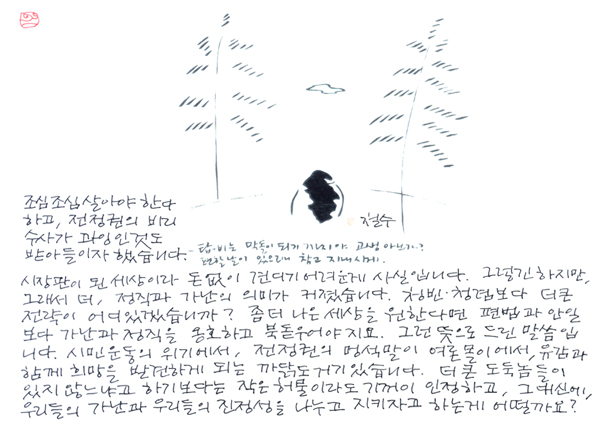 조심조심 살아야 한다
하고, 전정권의 비리
수사가 과잉인 것도
받아들이자 했습니다.
철수
답-비는 막돌이 되기 까지야 고생 아닌가?
변할날이 있으리니 참고 지내시게.
시장판이 된 세상이라 돈 없이 견디기 어려운게 사실입니다. 그렇긴 하지만,
그래서 더, 정직과 가난의 의미가 커졌습니다. 청빈·청렴보다 더 큰
전략이 어디있겠습니까? 좀 더 나은 세상을 원한다면 편법과 안일
보다 가난과 정직을 옹호하고 북돋우어야지요. 그런 뜻으로 드린 말씀입
니다. 시민운동의 위기에서, 전정권의 멍석말이 여론몰이에서, 유감과
함께 희망을 발견하게 되는 까닭도 거기 있습니다. 더 큰 도둑놈들이
있지 않느냐고 하기보다는 작은 허물이라도 기꺼이 인정하고, 그 대신에,
우리들의 가난과 우리들의 진정성을 나누고 지키자고 하는게 어떨까요?